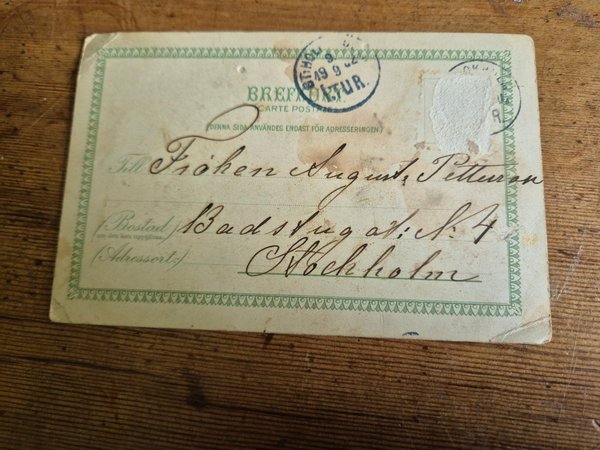 BREFKORT
CARTE POSTALE
(DENNA SIDA ANVÄNDES ENDAST FÖR ADRESSERINGEN.)
Till Fröken Augusta Petterson
(Bostad) Badstugat: N: 4
(Adressort:) Stockholm
19 9 02
1.TUR.